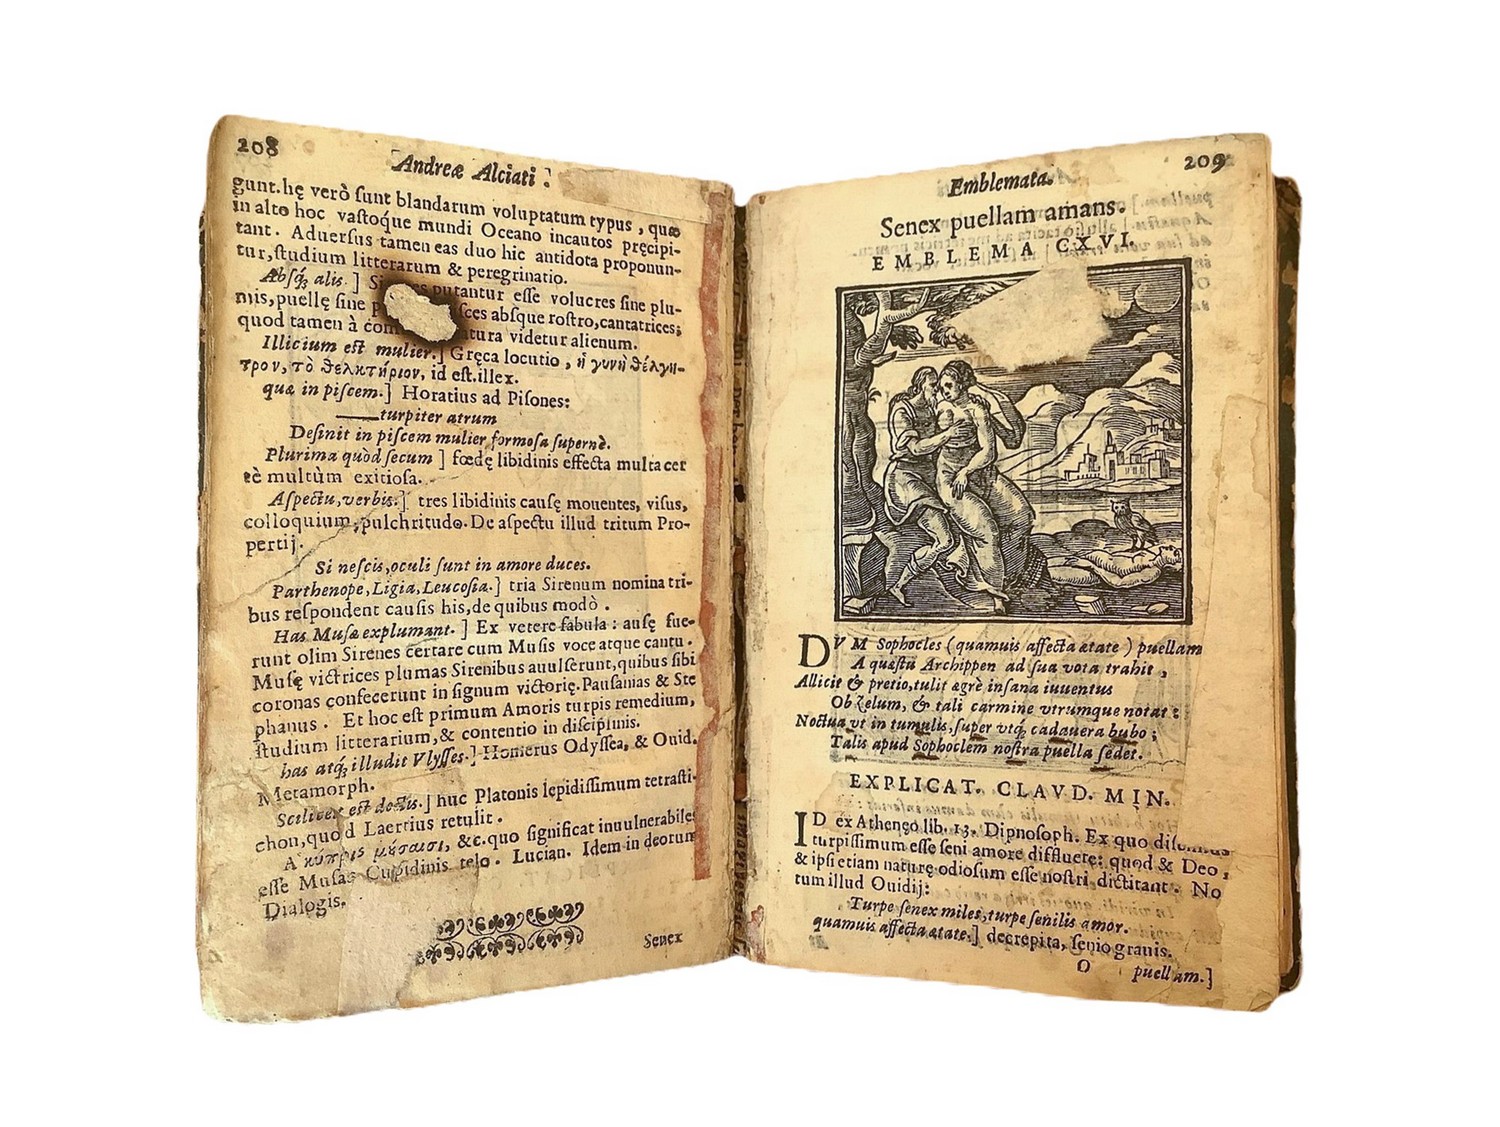 208
Andreæ Alciati
gunt. hę verò ſunt blandarum voluptatum typus, quæ
in alto hoc vaſtoque mundi Oceano incautos pręcipi-
tant. Aduerſus tamen eas duo hic antidota proponun-
tur, ſtudium litterarum & peregrinatio.
Abſq́; alis.] putantur eſſe volucres ſine plu-
mis, puellę ſine ſces abſque roſtro, cantatrices;
quod tamen à tura videtur alienum.
Illicium eſt mulier.] Gręca locutio, ἡ γυνὴ θέλγη-
τρον, τὸ θελκτήριον, id eſt. illex.
quæ in piſcem.] Horatius ad Piſones:
turpiter atrum
Deſinit in piſcem mulier formoſa ſupernè.
Plurima quòd ſecum] fœdę libidinis effecta multa cer
tè multùm exitioſa.
Aſpectu, verbis.] tres libidinis cauſę mouentes, viſus,
colloquium, pulchritudo. De aſpectu illud tritum Pro-
pertij.
Si neſcis, oculi ſunt in amore duces.
Parthenope, Ligia, Leucoſia.] tria Sirenum nomina tri-
bus reſpondent cauſis his, de quibus modò.
Has Muſæ explumant.] Ex vetere fabula: auſę fue-
runt olim Sirenes certare cum Muſis voce atque cantu.
Muſę victrices plumas Sirenibus auulſerunt, quibus ſibi
coronas confecerunt in ſignum victorię. Pauſanias & Ste
phanus. Et hoc eſt primum Amoris turpis remedium,
ſtudium litterarium, & contentio in diſciplinis.
has atq́; illudit Vlyſſes.] Homerus Odyſſea, & Ouid.
Metamorph.
Scilicet eſt doctis.] huc Platonis lepidiſſimum tetraſti-
chon, quod Laertius retulit.
Α κύπρις μούσαισι, &c. quo ſignificat inuulnerabiles
eſſe Muſas Cupidinis telo. Lucian. Idem in deorum
Dialogis.
Senex
Emblemata.
209
Senex puellam amans.
EMBLEMA CXVI.
DVM Sophocles (quamuis affecta ætate) puellam
A quæſtu Archippen ad ſua vota trahit,
Allicit & pretio, tulit ægrè inſana iuuentus
Ob zelum, & tali carmine vtrumque notat:
Noctua vt in tumulis, ſuper vtq́; cadauera bubo;
Talis apud Sophoclem noſtra puella ſedet.
EXPLICAT. CLAVD. MIN.
ID ex Athenęo lib. 13. Dipnoſoph. Ex quo
turpiſſimum eſſe ſeni amore diffluere: quod & Deo,
& ipſi etiam naturę odioſum eſſe noſtri dictitant. No
tum illud Ouidij:
Turpe ſenex miles, turpe ſenilis amor.
quamuis affecta ætate.] decrepita, ſenio grauis.
O
puellam.]